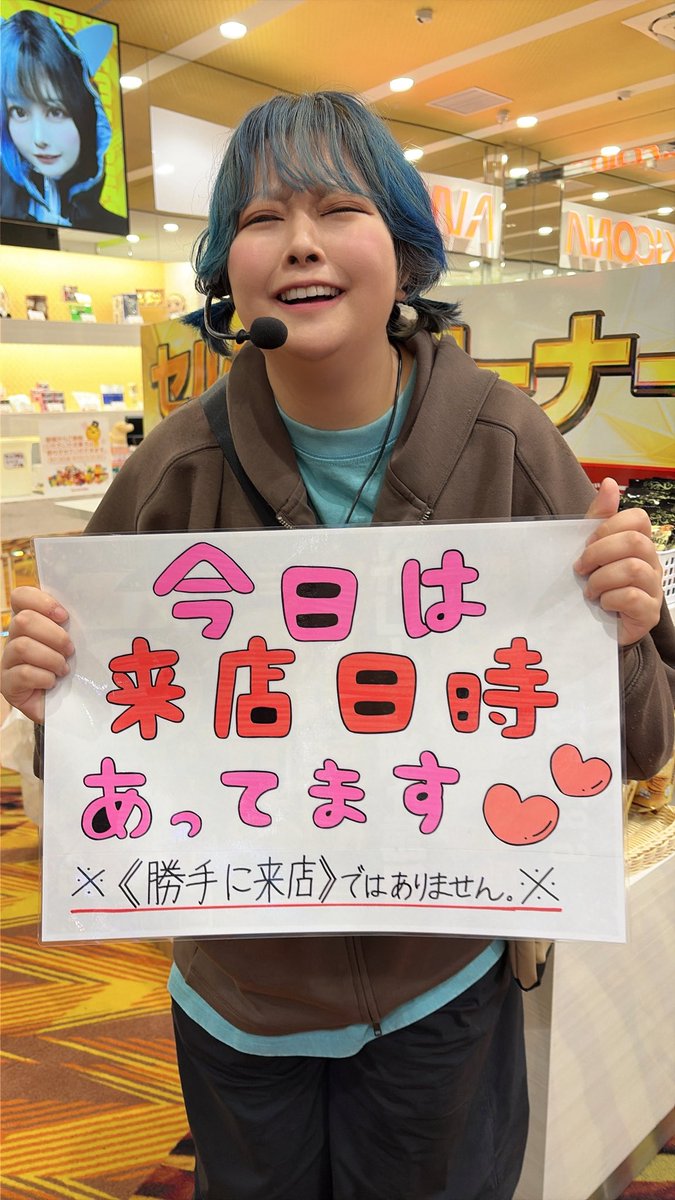 今日は
来店日時
あってます
※《勝手に来店》ではありません。※
セル
ーナー